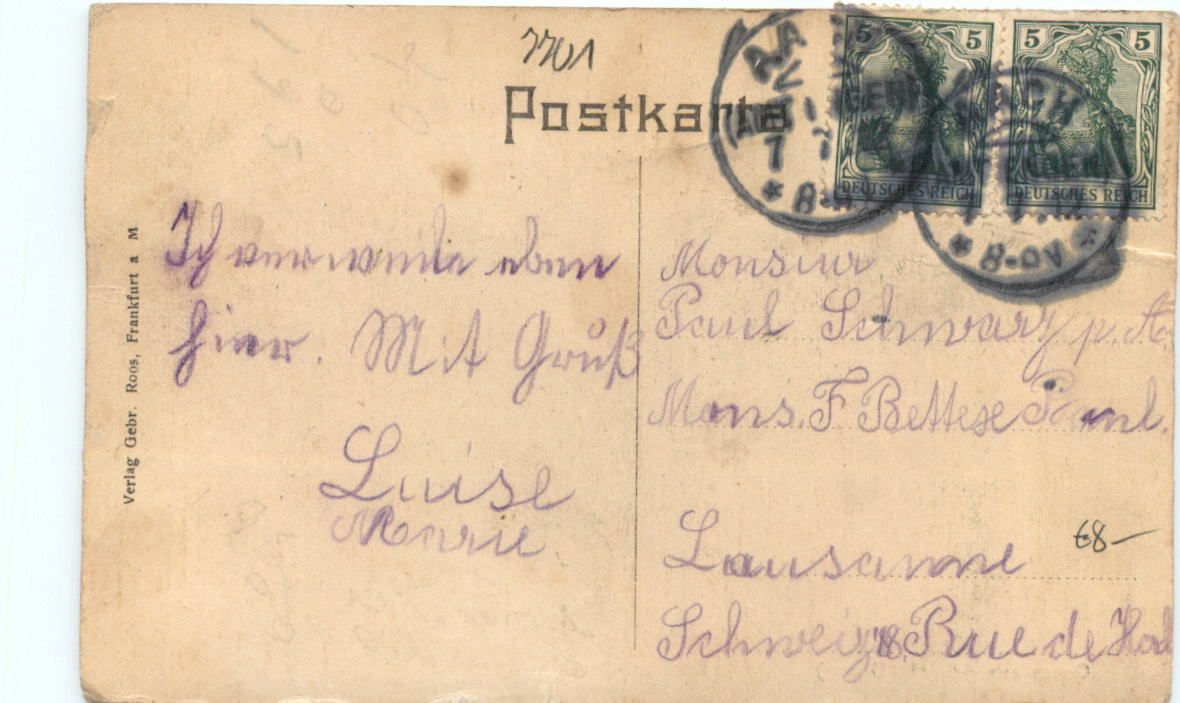 7701
Postkarte
5 5
5 5
DEUTSCHES REICH
DEUTSCHES REICH
* 8-9V *
Verlag Gebr. Roos, Frankfurt a M
Ich verweile eben
hier. Mit Gruß
Luise
Marie.
Monsieur
Paul Schwarz p. A.
Mons. F Bettex
Lausanne
€8-
Schweiz 18. Rue de